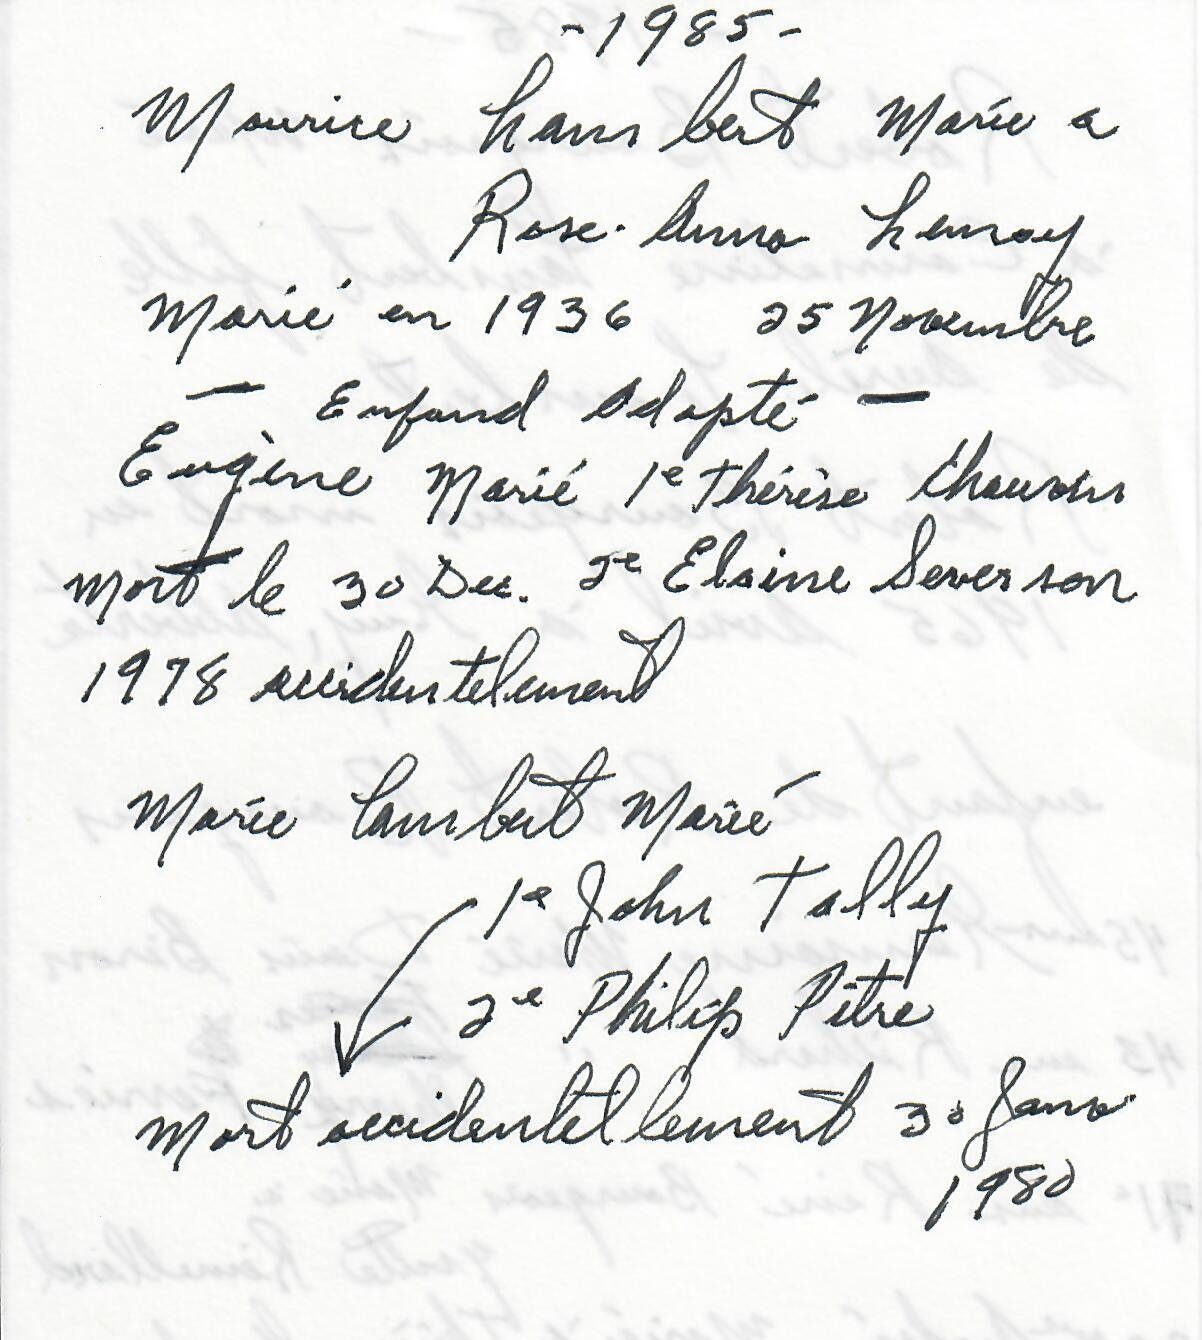 -1985-
Maurice Lambert Marie a
Rose-Anna Leroy
Marié en 1936 25 Novembre
— Enfand Adopté —
Eugène Marié 1e Thérèse Chauvin
Mort le 30 Dec. 2e Elaine Severson
1978 accidentelement
Marie Lambert Marié
1e John Tally
2e Philip Pitre
Mort accidentellement 30 Janv.
1980